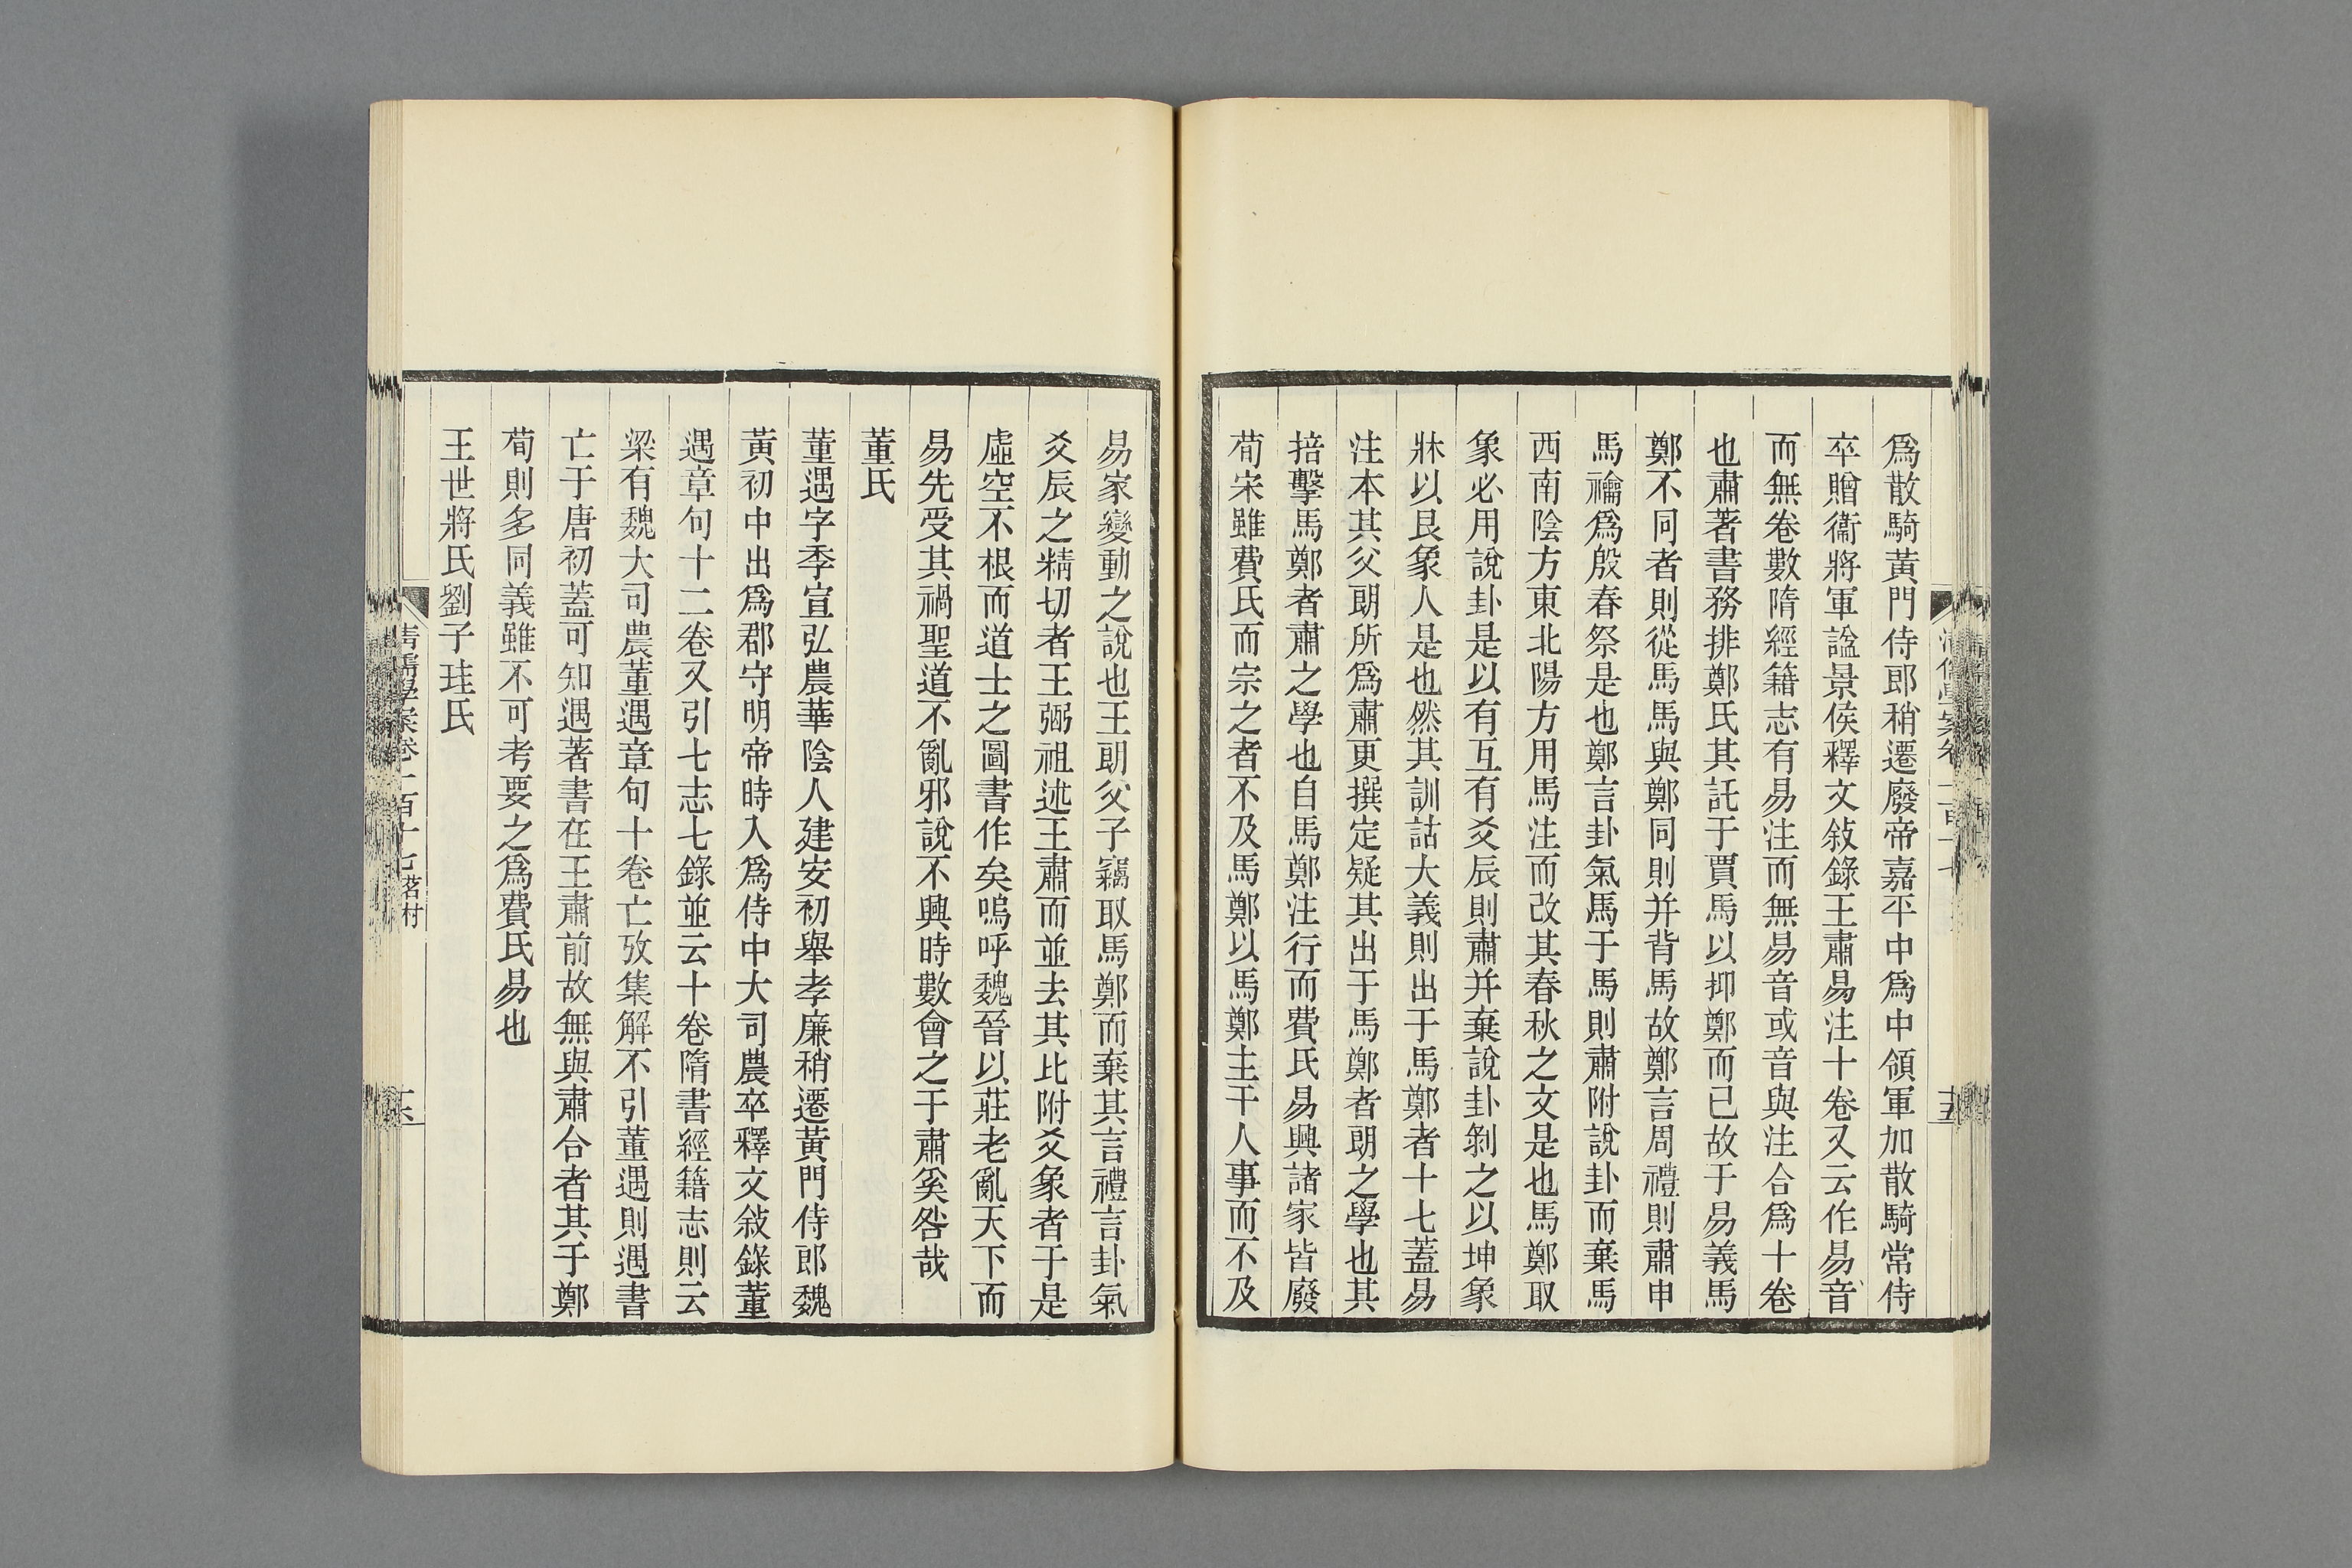 爲散騎黃門侍郎稍遷廢帝嘉平中爲中領軍加散騎常侍
卒贈衞將軍諡景侯釋文敍錄王肅易注十卷又云作易音
而無卷數隋經籍志有易注而無易音或音與注合爲十卷
也肅著書務排鄭氏其託于賈馬以抑鄭而已故于易義馬
鄭不同者則從馬馬與鄭同則并背馬故鄭言周禮則肅申
馬禴爲殷春祭是也鄭言卦氣馬于馬則肅附說卦而棄馬
西南陰方東北陽方用馬注而改其春秋之文是也馬鄭取
象必用說卦是以有互有爻辰則肅并棄說卦剝之以坤象
牀以艮象人是也然其訓詁大義則出于馬鄭者十七蓋易
注本其父朗所爲肅更撰定疑其出于馬鄭者朗之學也其
掊擊馬鄭者肅之學也自馬鄭注行而費氏易興諸家皆廢
荀宋雖費氏而宗之者不及馬鄭以馬鄭主干人事而不及
易家變動之說也王朗父子竊取馬鄭而棄其言禮言卦氣
爻辰之精切者王弼祖述王肅而並去其比附爻象者于是
虛空不根而道士之圖書作矣嗚呼魏晉以莊老亂天下而
易先受其禍聖道不亂邪說不興時數會之于肅奚咎哉
董氏
董遇字季宣弘農華陰人建安初舉孝廉稍遷黃門侍郎魏
黃初中出爲郡守明帝時入爲侍中大司農卒釋文敍錄董
遇章句十二卷又引七志七錄並云十卷隋書經籍志則云
梁有魏大司農董遇章句十卷亡攷集解不引董遇則遇書
亡于唐初蓋可知遇著書在王肅前故無與肅合者其于鄭
荀則多同義雖不可考要之爲費氏易也
王世將氏劉子珪氏
清儒學案卷一百十七 茗村